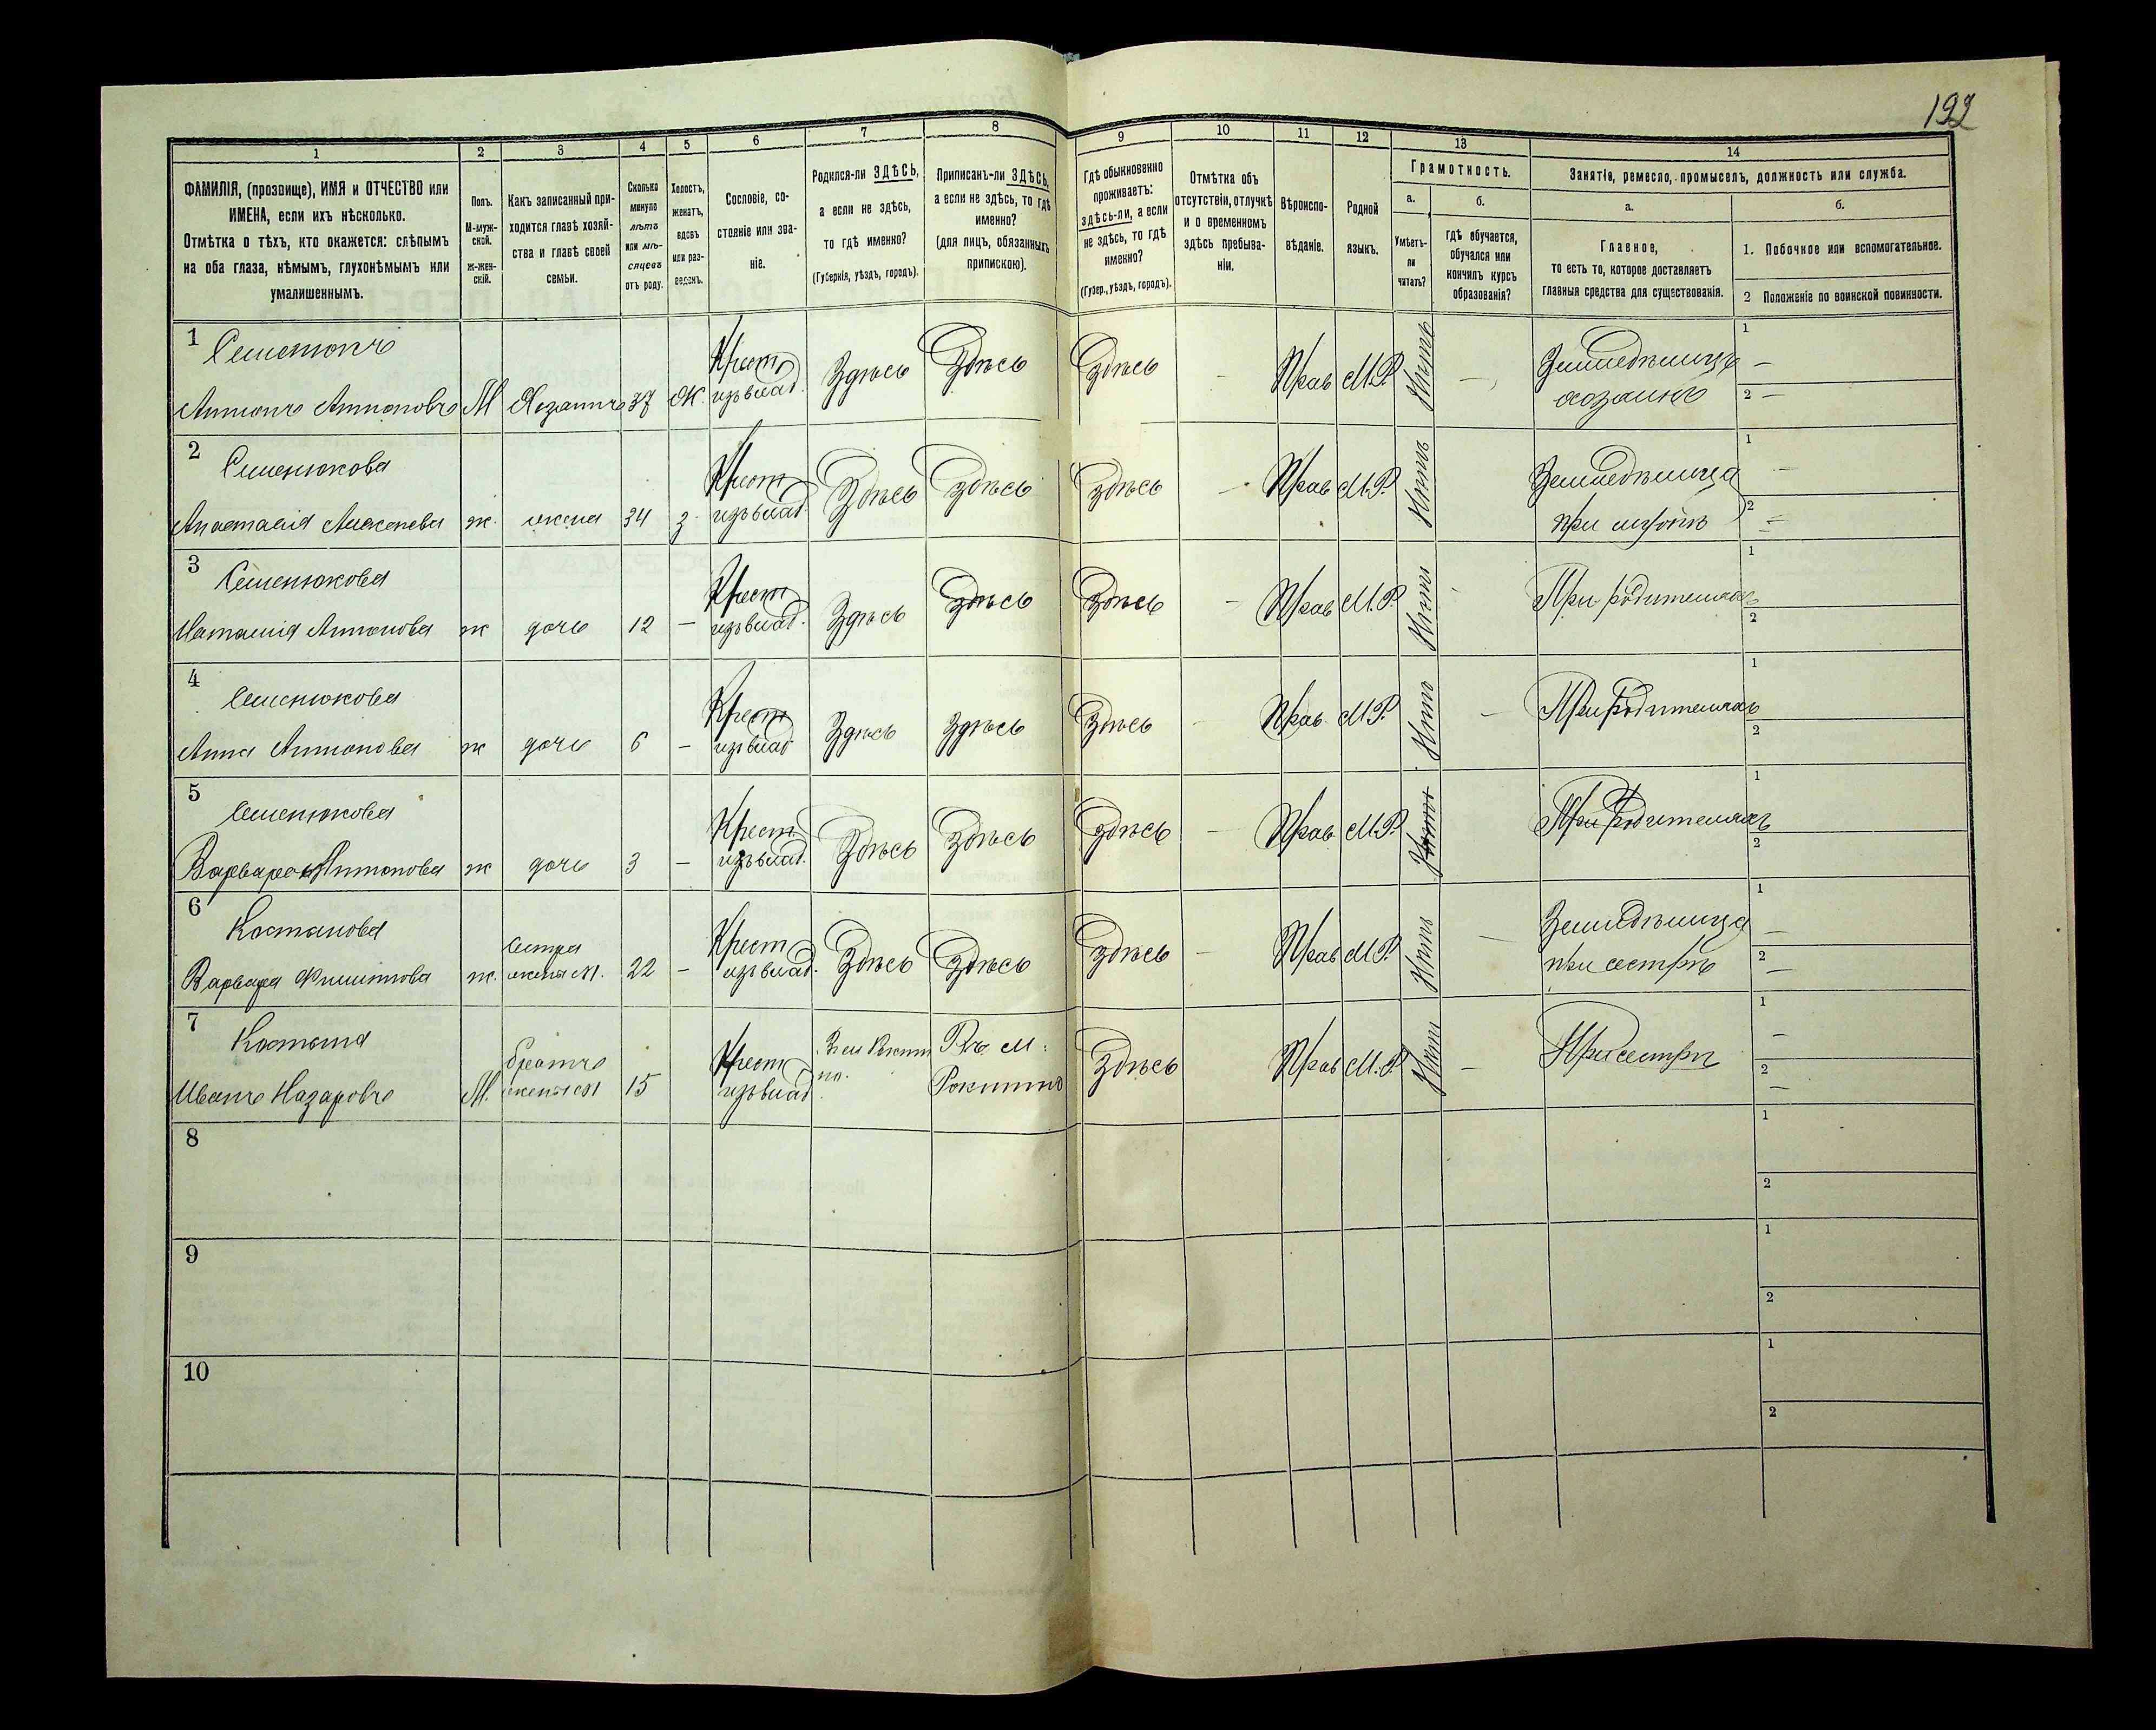 192
1 2 3 4 5 6 7 8 9 10 11 12 13 14
ФАМИЛІЯ, (прозвище), ИМЯ и ОТЧЕСТВО или
ИМЕНА, если ихъ нѣсколько.
Отмѣтка о тѣхъ, кто окажется: слѣпымъ
на оба глаза, нѣмымъ, глухонѣмымъ или
умалишеннымъ.
Полъ.
М-муж-
ской.
Ж-жен-
скій.
Какъ записанный при-
ходится главѣ хозяй-
ства и главѣ своей
семьи.
Сколько
минуло
лѣтъ
или мѣ-
сяцевъ
отъ роду.
Холостъ,
женатъ,
вдовъ
или раз-
веденъ.
Сословіе, со-
стояніе или зва-
ніе.
Родился-ли ЗДѢСЬ,
а если не здѣсь,
то гдѣ именно?
(Губернія, уѣздъ, городъ).
Приписанъ-ли ЗДѢСЬ,
а если не здѣсь, то гдѣ
именно?
(для лицъ, обязанныхъ
припискою).
Гдѣ обыкновенно
проживаетъ:
здѣсь-ли, а если
не здѣсь, то гдѣ
именно?
(Губер., уѣздъ, городъ).
Отмѣтка объ
отсутствіи, отлучкѣ
и о временномъ
здѣсь пребыва-
ніи.
Вѣроиспо-
вѣданіе.
Родной
языкъ.
Грамотность.
а.
Умѣетъ-
ли
читать?
б.
Гдѣ обучается,
обучался или
кончилъ курсъ
образованія?
Занятіе, ремесло, промыселъ, должность или служба.
а.
Главное,
то есть то, которое доставляетъ
главныя средства для существованія.
б.
1. Побочное или вспомогательное.
2 Положеніе по воинской повинности.
1 Семенюкъ Крест. Здѣсь Здѣсь Прав М.Р. Нѣтъ — 1 —
Антонъ Антоновъ М Хозяинъ 37 Ж. изъ влад. хозяинъ 2 —
2 Семенюкова Крест Здѣсь Здѣсь Здѣсь — Прав М.Р. Нѣтъ 1 —
Анастасія Алексеева ж. жена 34 З изъ влад. при мужѣ 2 —
3 Семенюкова Крест Здѣсь Здѣсь Здѣсь — Прав М.Р. Нѣтъ При родителяхъ 1
Наталія Антонова ж дочь 12 — изъ влад. 2
4 Семенюкова Крест Здѣсь Здѣсь Здѣсь — Прав. М.Р. Нѣтъ — При родителяхъ 1
Анна Антонова ж дочь 6 — изъ влад 2
5 Семенюкова Крест. Здѣсь Здѣсь Здѣсь — Прав М.Р. При родителяхъ 1
Варвара Антонова ж дочь 3 — изъ влад. 2
6 Сестра Крест Здѣсь Здѣсь Здѣсь — Прав М.Р. Нѣтъ — 1 —
Варвара ж. жены 22 — изъ влад. при сестрѣ 2 —
7 братъ Крест Здѣсь Прав М.Р. Нѣтъ — При сестрѣ 1 —
Иванъ Назаровъ М. жены 15 изъ влад 2 —
8 1
2
9 1
2
10 1
2